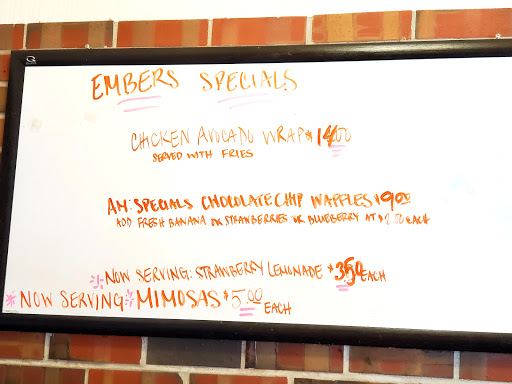 EMBERS SPECIALS
CHICKEN AVOCADO WRAP $14.00
SERVED WITH FRIES
AM: SPECIALS CHOCOLATE CHIP WAFFLES $9.00
ADD FRESH BANANA OR STRAWBERRIES OR BLUEBERRY AT $2.00 EACH
NOW SERVING: STRAWBERRY LEMONADE $3.50 EACH
NOW SERVING: MIMOSAS $5.00 EACH